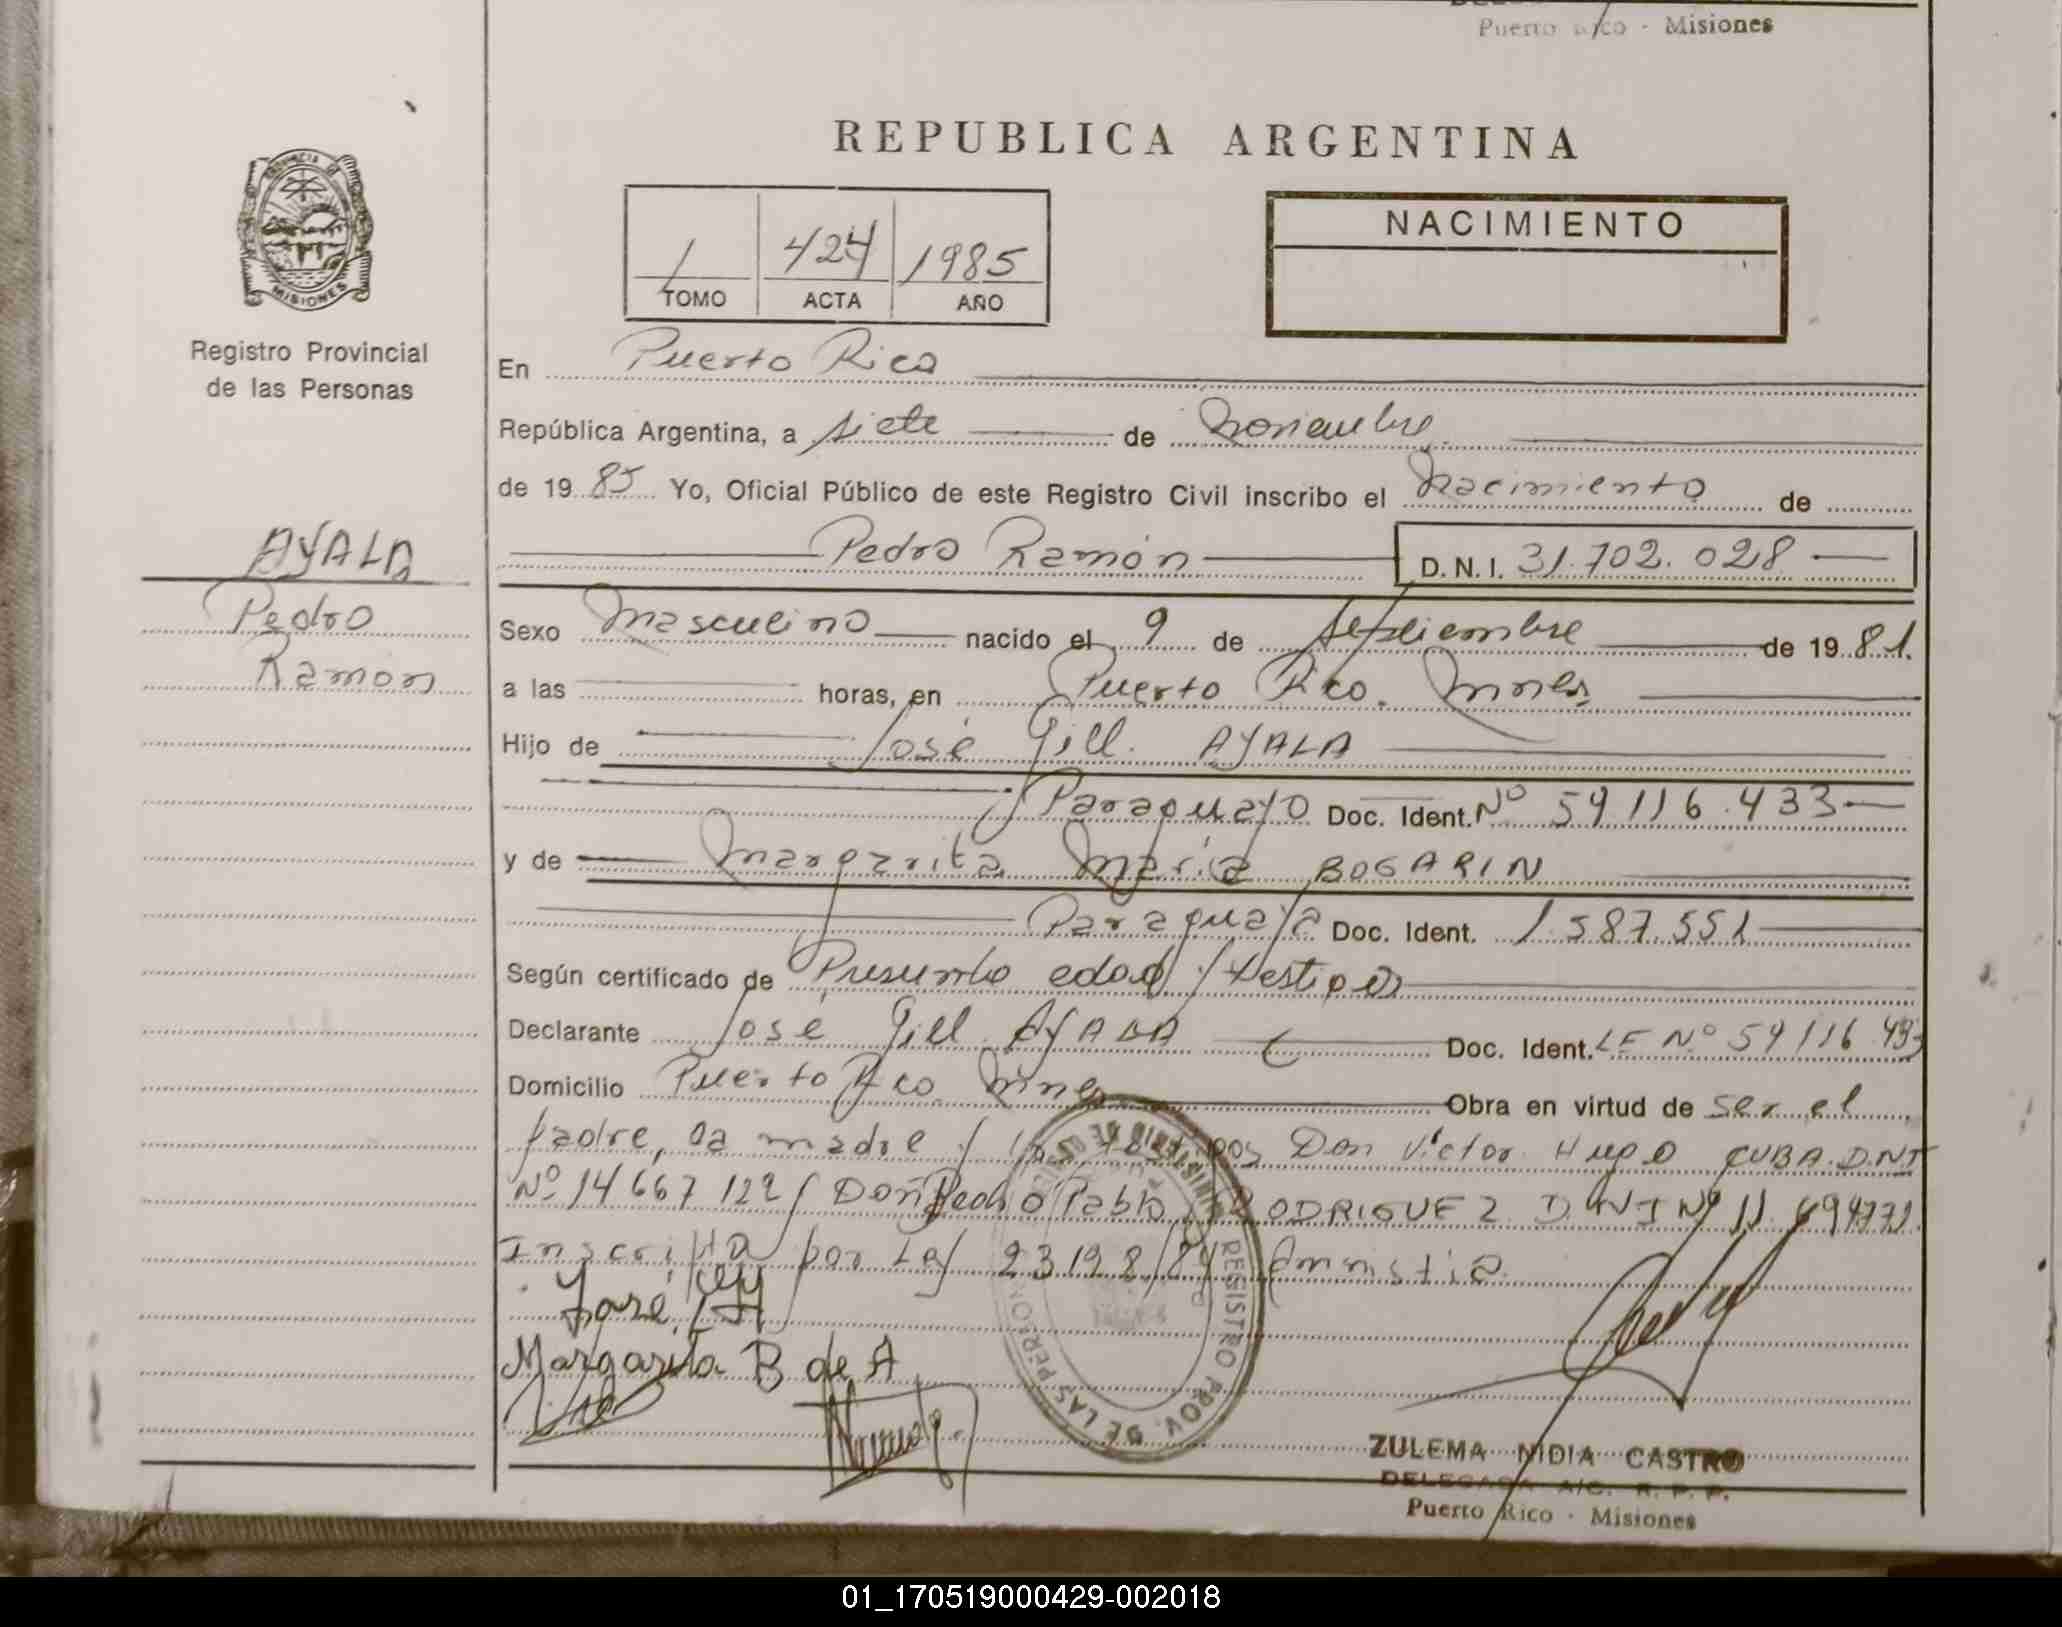 Puerto Rico - Misiones
REPUBLICA ARGENTINA
PROVINCIA DE
MISIONES
Registro Provincial
de las Personas
1 424 1985
TOMO ACTA AÑO
NACIMIENTO
En Puerto Rico
República Argentina, a siete de Noviembre
de 1985 Yo, Oficial Público de este Registro Civil inscribo el Nacimiento de
Pedro Ramón D.N.I. 31.702.028
AYALA
Pedro
Ramón
Sexo Masculino nacido el 9 de Septiembre de 1981.
a las horas, en Puerto Rico. Mnes
Hijo de José Gill. AYALA
Paraguayo Doc. Ident. Nº 59116.433
y de Margarita María BOGARIN
Paraguaya Doc. Ident. 1.587.551
Según certificado de Presunta edad y testigos
Declarante José Gill AYALA Doc. Ident. LE Nº 59116.433
Domicilio Puerto Rico. Mnes Obra en virtud de ser el
padre, la madre y los testigos Don Víctor Hugo CUBA D.N.I
Nº 14667122 y Don Pedro Pablo RODRIGUEZ D.N.I Nº 11.694771.
Inscripta por Ley 23198/84 Amnistía.
José
Margarita B de A
REGISTRO PROV. DE LAS PERSONAS
ZULEMA NIDIA CASTRO
DELEGADA A/C. R. P. P.
Puerto Rico - Misiones
01_170519000429-002018